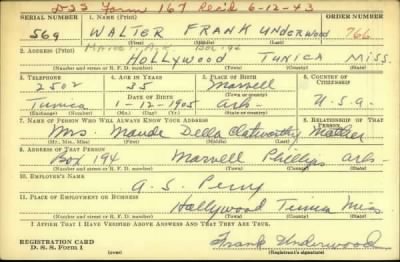 D22 Form 167 Rec'd 6-12-43
SERIAL NUMBER 1. NAME (Print) ORDER NUMBER
569 WALTER FRANK Underwood 766
(First) (Middle) (Last)
2. ADDRESS (Print)
HOLLYWOOD TUNICA MISS.
(Number and street or R. F. D. number) (Town) (County) (State)
3. TELEPHONE 4. AGE IN YEARS 5. PLACE OF BIRTH 6. COUNTRY OF CITIZENSHIP
2502 35 Marvell
DATE OF BIRTH (Town or county)
Tunica 1-12-1905 Ark- U.S.A.
(Exchange) (Number) (Mo.) (Day) (Yr.) (State or country)
7. NAME OF PERSON WHO WILL ALWAYS KNOW YOUR ADDRESS 8. RELATIONSHIP OF THAT PERSON
Mrs. Maude Della Clatworthy Mother
(Mr., Mrs., Miss) (First) (Middle) (Last)
9. ADDRESS OF THAT PERSON
Box 194 Marvell Phillips Ark-
(Number and street or R. F. D. number) (Town) (County) (State)
10. EMPLOYER'S NAME
A. S. Perry
11. PLACE OF EMPLOYMENT OR BUSINESS
Hollywood Tunica Miss
(Number and street or R. F. D. number) (Town) (County) (State)
I AFFIRM THAT I HAVE VERIFIED ABOVE ANSWERS AND THAT THEY ARE TRUE.
REGISTRATION CARD
D. S. S. Form 1 (over) Frank Underwood
(Registrant's signature)